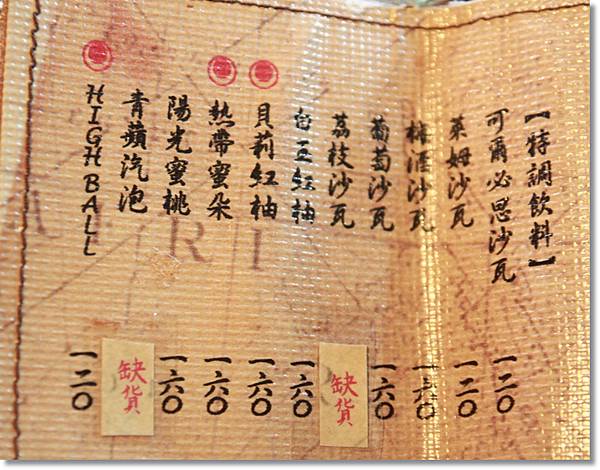 【特調飲料】
可爾必思沙瓦 一二〇
萊姆沙瓦 一二〇
梅酒沙瓦 一六〇
葡萄沙瓦 一六〇
荔枝沙瓦 缺貨
紅柚 一六〇
貝莉紅柚 一六〇
熱帶蜜朵 一六〇
陽光蜜桃 一六〇
青蘋汽泡 缺貨
HIGH BALL 一二〇